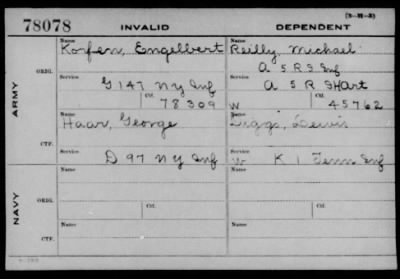 (3-11-3)
78078 INVALID DEPENDENT
Name Name
Korfen, Engelbert Reilly, Michael
A 5 R.I Inf
ORIG. Service Service
G 147 NY Inf A 5 R Art
Ctf. Ctf.
78309 W 45762
ARMY
Name Name
Haar, George Diggs, Lewis
CTF. Service Service
D 97 NY Inf W K 1 Tenn Inf
Name Name
ORIG. Service Ctf. Service Ctf.
NAVY
Name Name
CTF. Service Service